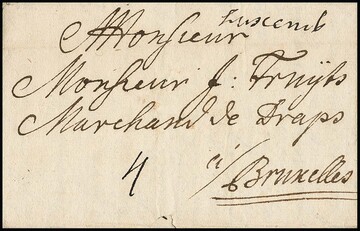 Monsieur
Monsieur J: Fruÿts
Marchand de Draps
4 a/ Bruxelles